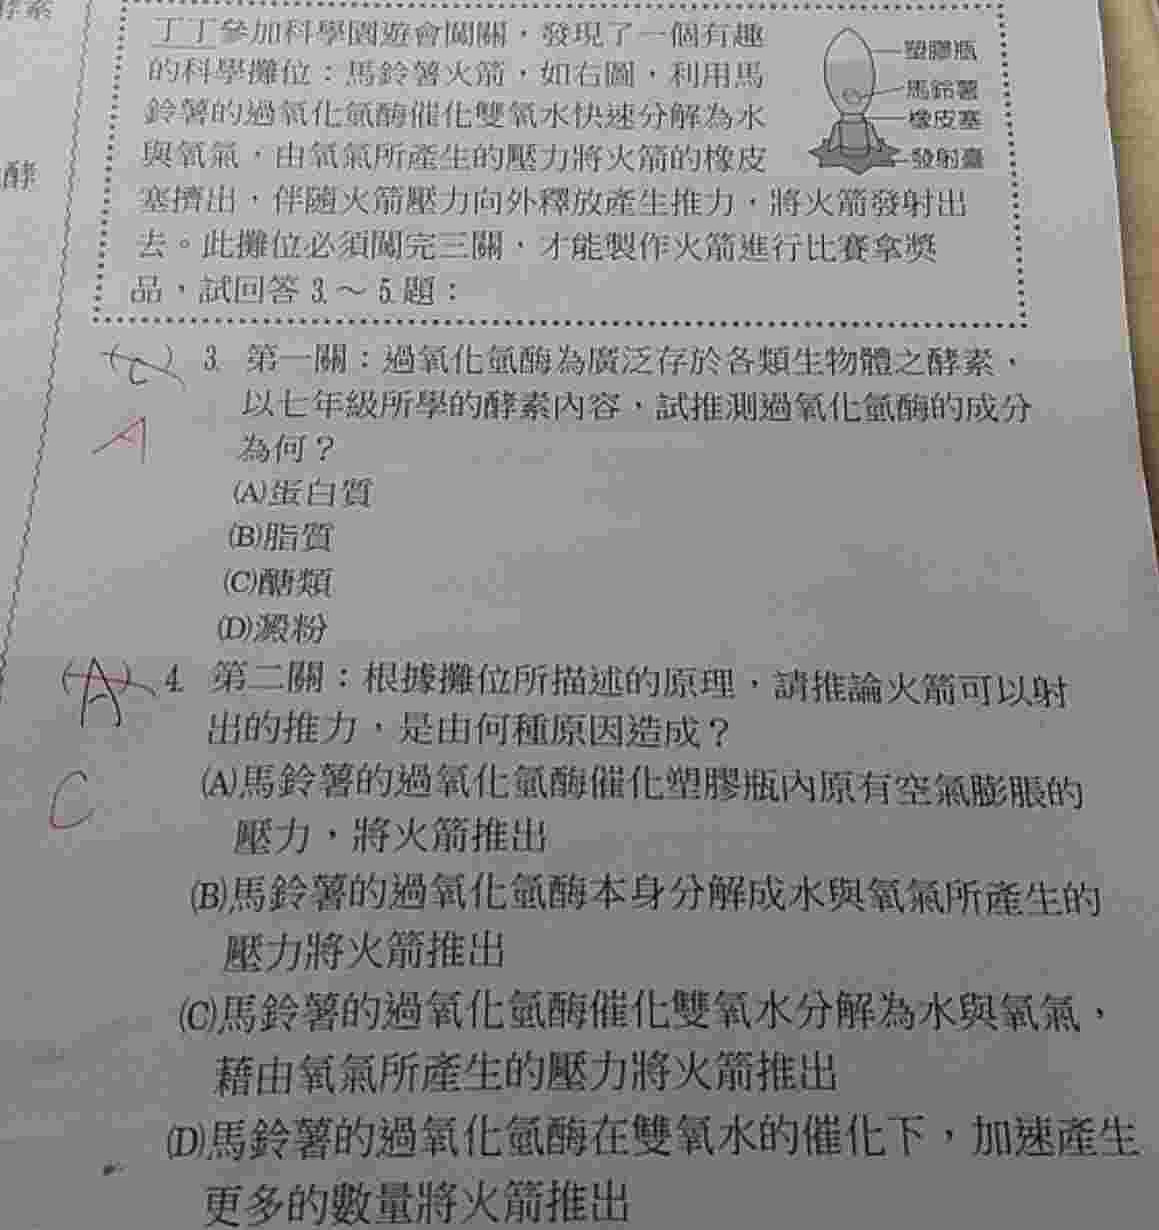 酵素
酵
丁丁參加科學園遊會闖關，發現了一個有趣
的科學攤位：馬鈴薯火箭，如右圖，利用馬
鈴薯的過氧化氫酶催化雙氧水快速分解為水
與氧氣，由氧氣所產生的壓力將火箭的橡皮
塞擠出，伴隨火箭壓力向外釋放產生推力，將火箭發射出
去。此攤位必須闖完三關，才能製作火箭進行比賽拿獎
品，試回答 3. ～ 5. 題：
塑膠瓶
馬鈴薯
橡皮塞
發射臺
(C) 3. 第一關：過氧化氫酶為廣泛存於各類生物體之酵素，
以七年級所學的酵素內容，試推測過氧化氫酶的成分
為何？
A
(A)蛋白質
(B)脂質
(C)醣類
(D)澱粉
(A) 4. 第二關：根據攤位所描述的原理，請推論火箭可以射
出的推力，是由何種原因造成？
C
(A)馬鈴薯的過氧化氫酶催化塑膠瓶內原有空氣膨脹的
壓力，將火箭推出
(B)馬鈴薯的過氧化氫酶本身分解成水與氧氣所產生的
壓力將火箭推出
(C)馬鈴薯的過氧化氫酶催化雙氧水分解為水與氧氣，
藉由氧氣所產生的壓力將火箭推出
(D)馬鈴薯的過氧化氫酶在雙氧水的催化下，加速產生
更多的數量將火箭推出